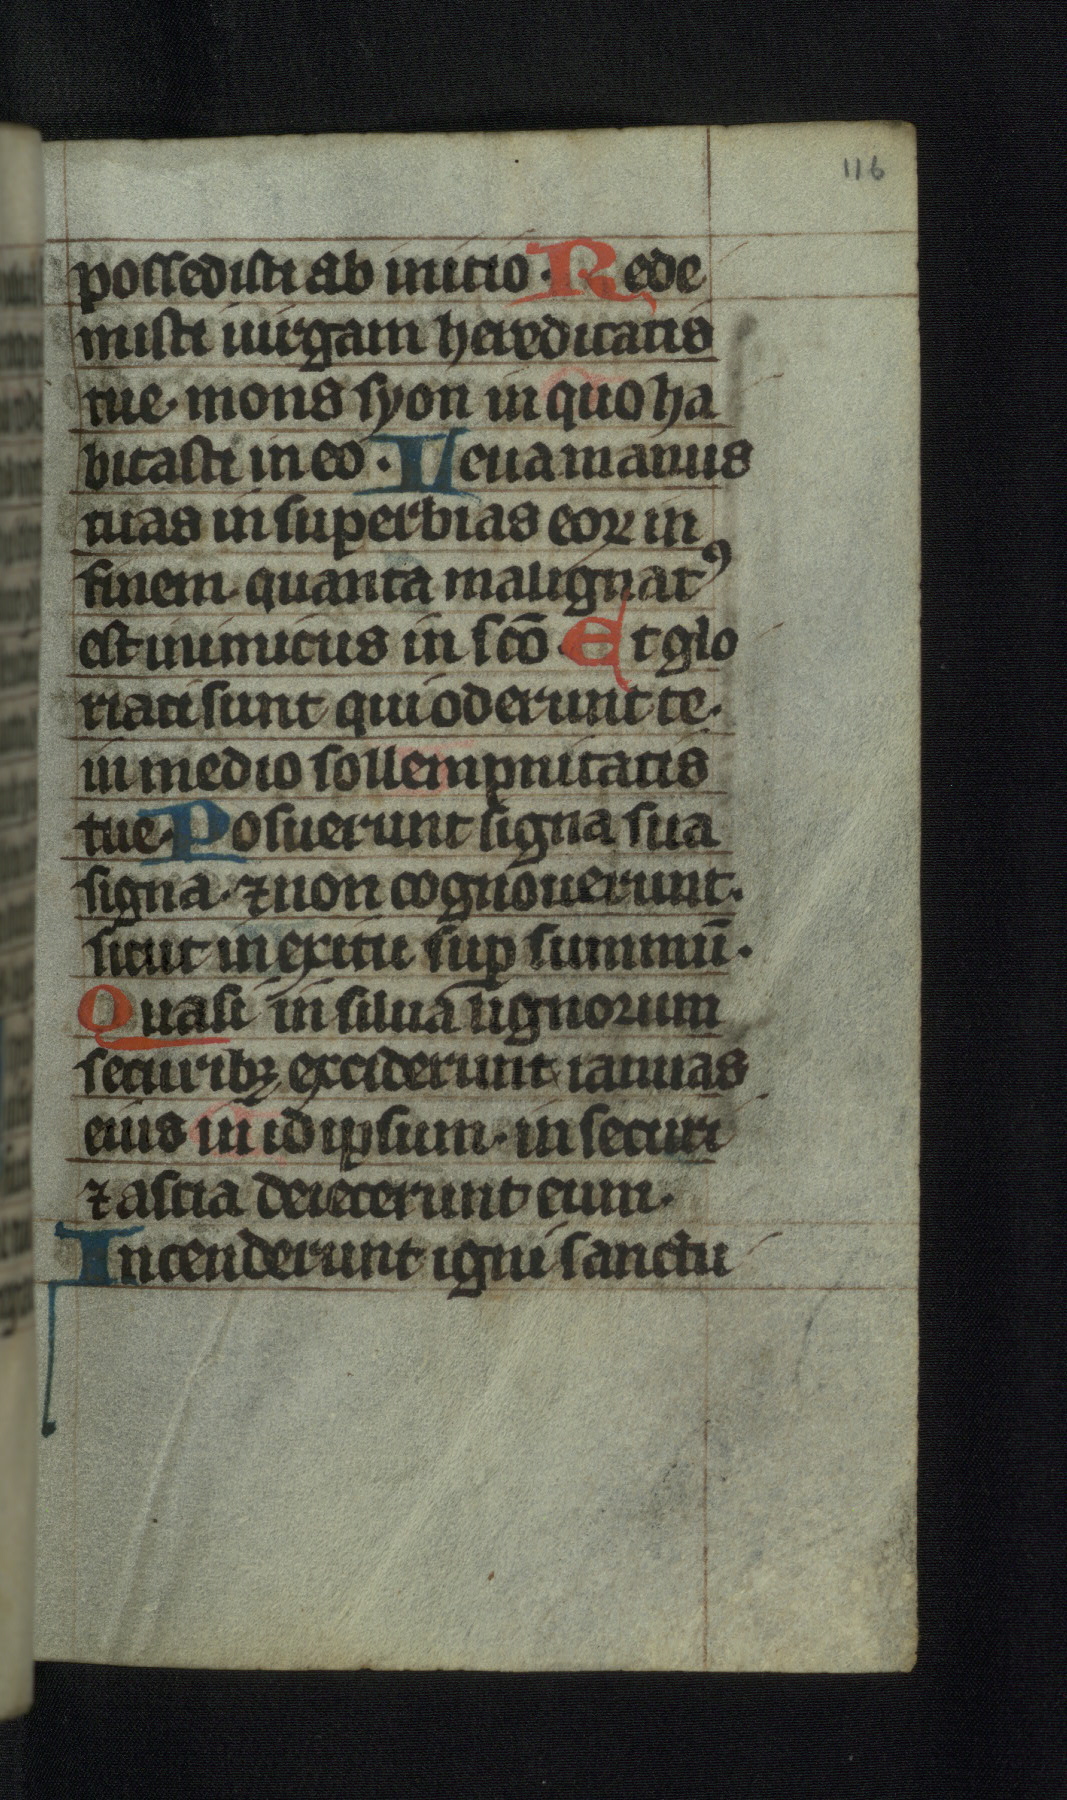 116
possedisti ab initio · Rede
misti uirgam hereditatis
tue · mons syon in quo ha
bitasti in eo · Leua manus
tuas in superbias eoꝝ in
finem · quanta malignatꝰ
est inimicus in sc̄o · Et glo
riati sunt qui oderunt te ·
in medio sollempnitatis
tue · Posuerunt signa sua
signa · ⁊ non cognouerunt ·
sicut in exitu suꝑ summū ·
Quasi in silua lignorum
securibꝫ exciderunt ianuas
eius in idipsum · in securi
⁊ ascia deiecerunt eum ·
Incenderunt igni sanctu